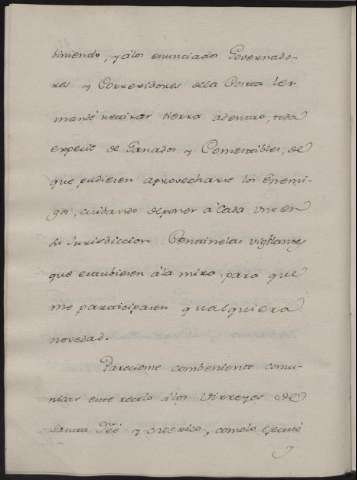 biniendo, y alos enunciados Governado-
res y Correxidores dela Costa les
mandé retirar tierra adentro, toda
especie de Ganados y Comestibles, de
que pudiesen aprovecharse los Enemi-
gos, cuidando deponer â Cada uno en
su Jurisdiccion Centinelas vigilantes
que estubiesen âla mira, para que
me participasen qualquiera
novedad.
Pareciome combeniente comu-
nicar este recelo âlos Virreyes de
Santa Feé y Mexico, como lo executé